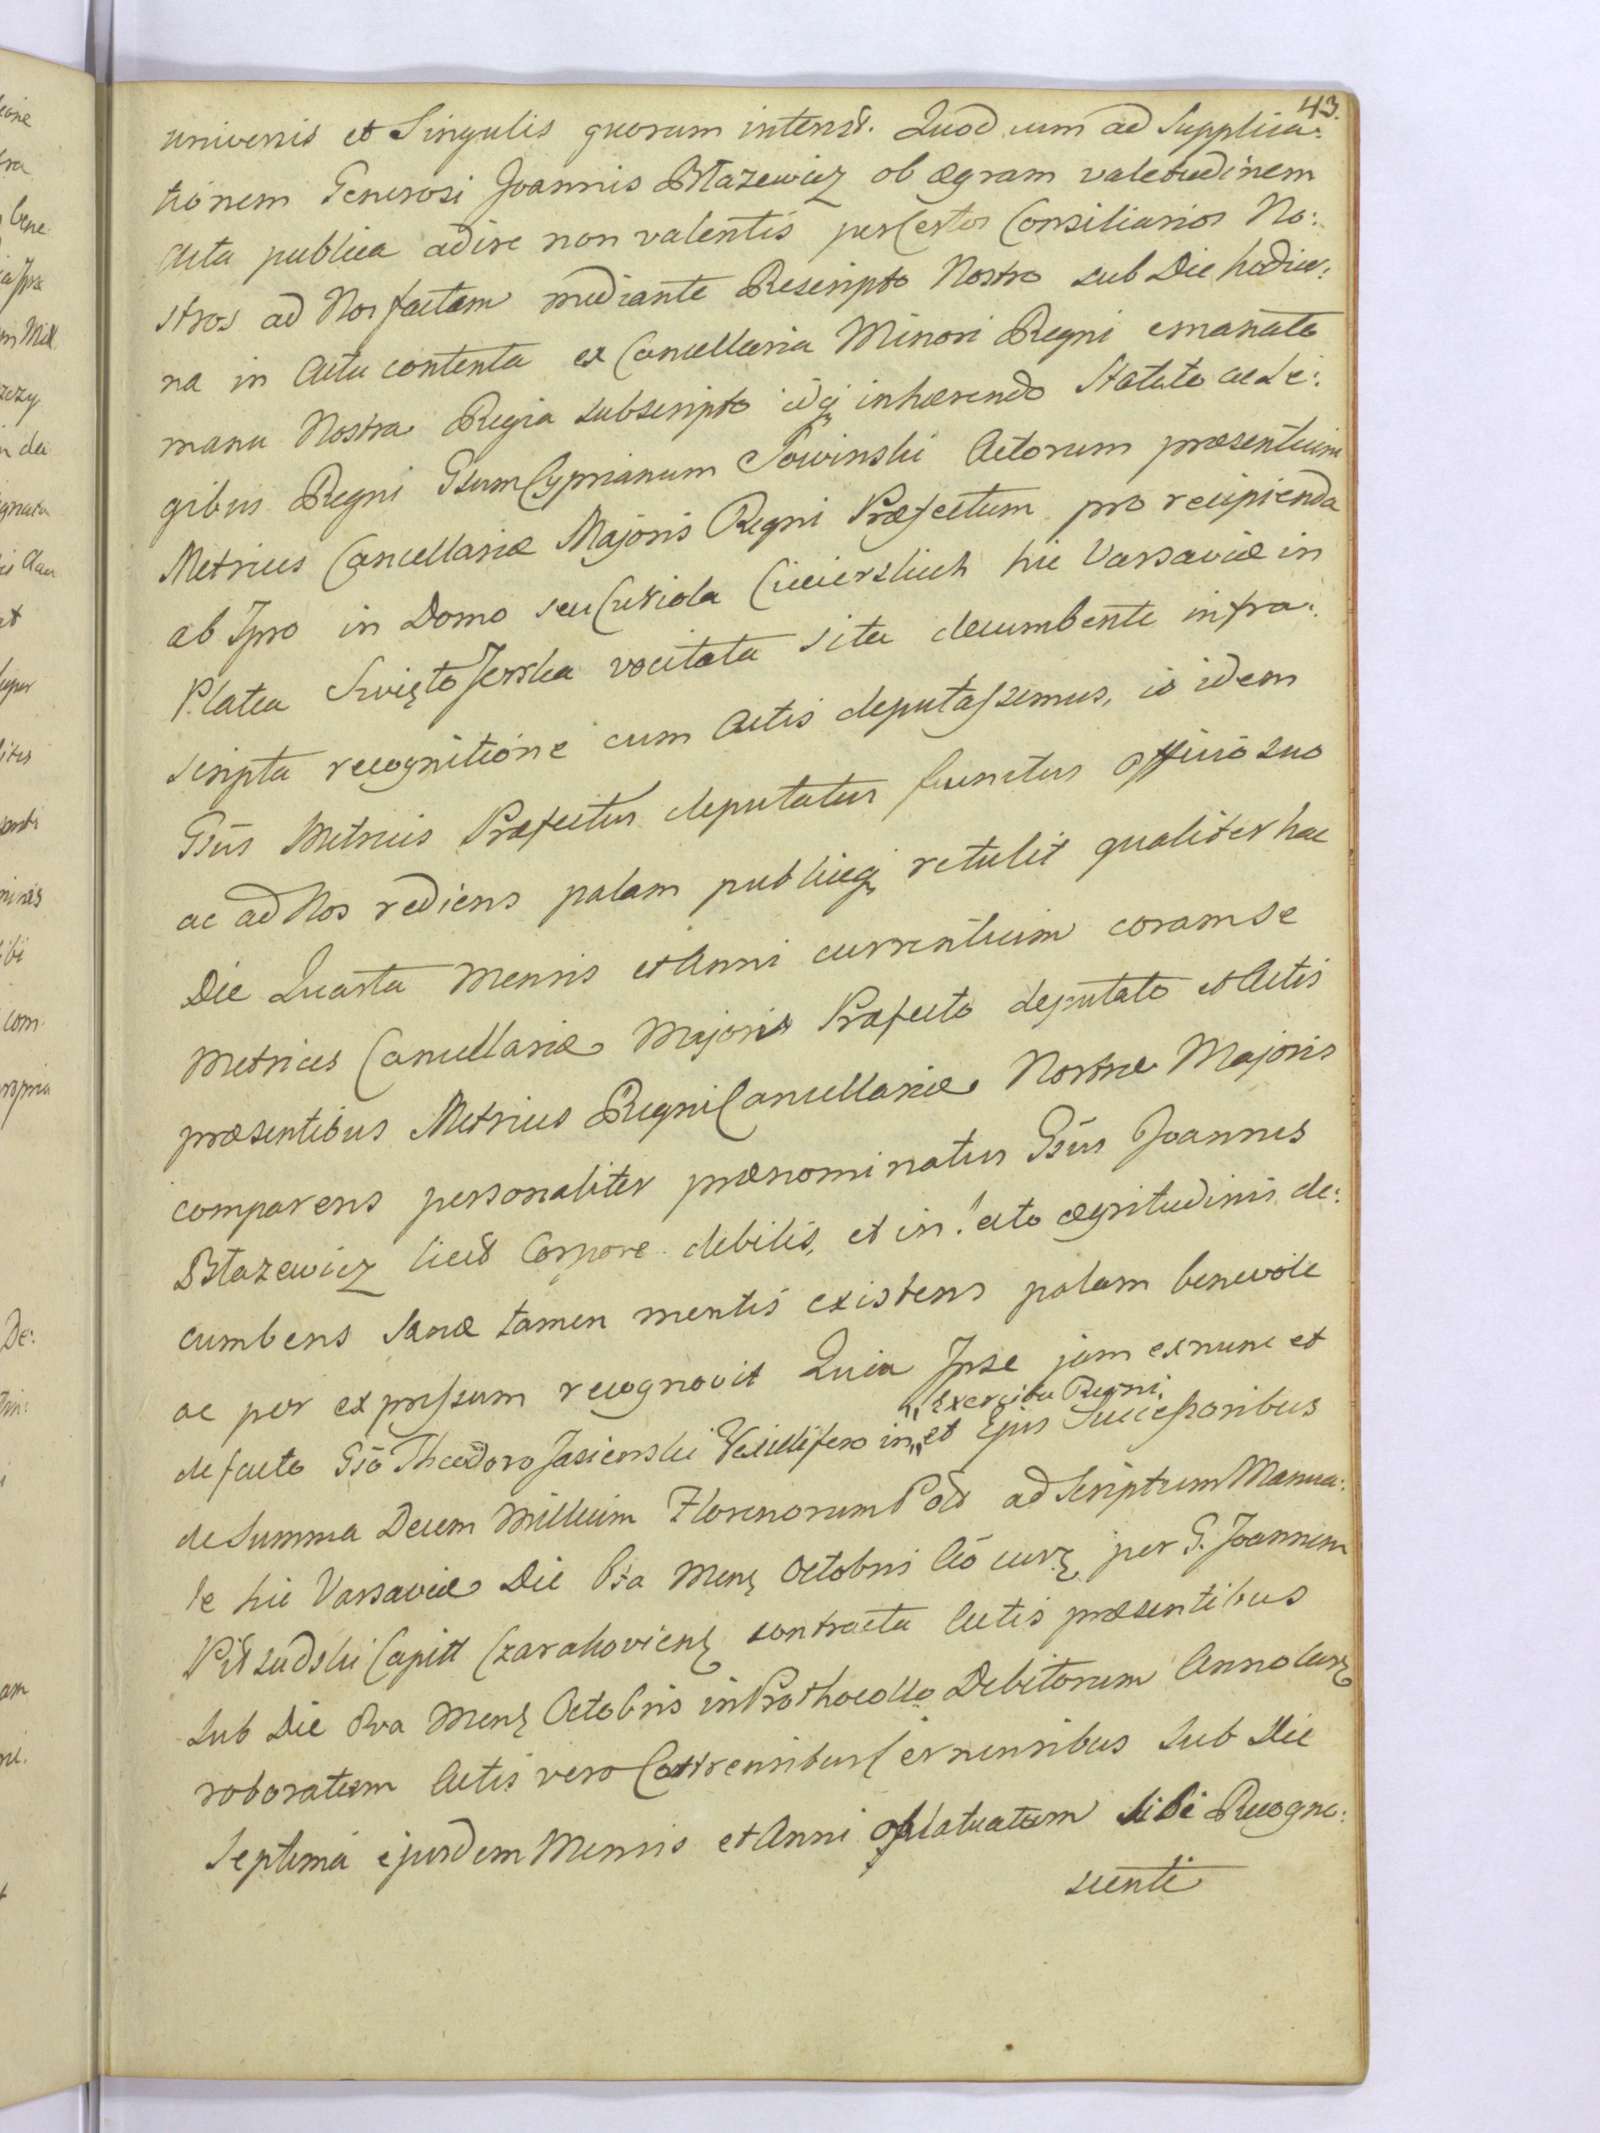 43.
universis et Singulis quorum interest. Quod cum ad Supplica:
tionem Generosi Joannis Błazewicz ob ægram valetudinem
Acta publica adire non valentis per Certos Consiliarios No:
stros ad Nos factam mediante Rescripto Nostro sub Die hodier:
na in Actu contenta ex Cancellaria Minori Regni emanato
manu Nostra Regia subscripto idq inhærendo Statuto ac Le:
gibus Regni Gsum Cyprianum Sowinski Actorum præsentium
Metrices Cancellariæ Majoris Regni Præfectum pro recipienda
ab Ipso in Domo seu Curiola Ciecierskich hic Varsaviæ in
Platea Swięto Jerska vocitata sita decumbente infra:
scripta recognitione cum Actis deputaſsemus, is idem
Gsūs Metrices Præfectus deputatus functus officio suo
ac ad Nos rediens palam publiceq retulit qualiter hac
Die Quarta Mensis et Anni currentium coram se
Metrices Cancellariæ Majoris Præfecto deputato et Actis
præsentibus Metrices Regni Cancellariæ Nostræ Majoris
comparens personaliter prænominatus Gsūs Joannes
Błazewicz licet Corpore debilis, et in lecto ægritudinis de:
cumbens Sanæ tamen mentis existens palam benevole
ac per expreſsum recognovit Quia Ipse jam ex nunc et
"Exercitu Regni,
de facto Gsō Theodoro Jasienski Vexillifero in "et Ejus Succeſsoribus
de Summa Decem Millium Florenorum Pol ad Scriptum Manua:
le hic Varsaviæ Die 1ma Mens Octobris Ao curr per G. Joannem
Piłsudski Capitt Czarakoviens contracta Actis præsentibus
Sub Die 1ma Mens Octobris in Prothocollo Debitorum Anno curr
roboratum Actis vero Castrensibus Cernensibus Sub Die
Septima ejusdem Mensis et Anni oblatuatum sibi Recogno:
scenti